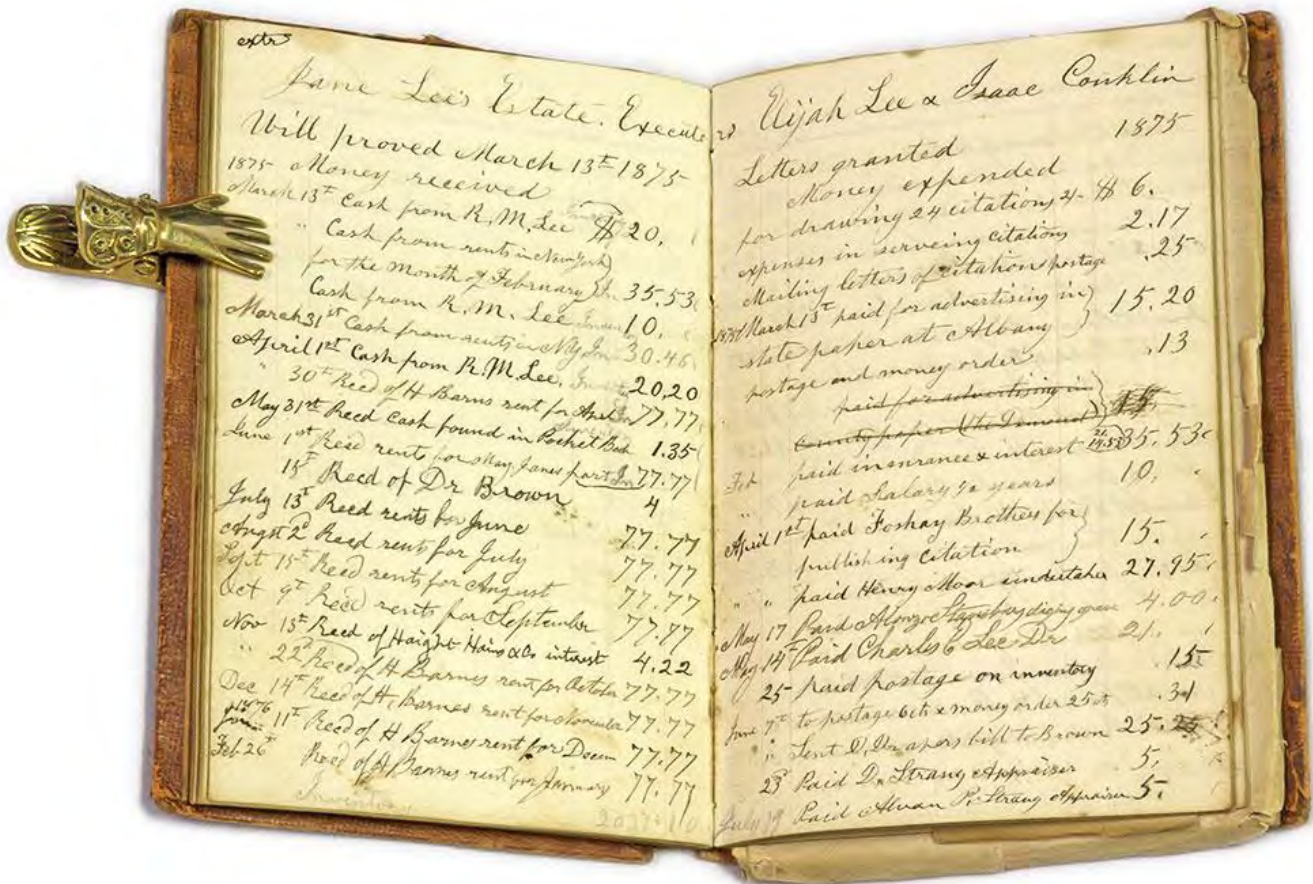 extr
Jane Lee's Estate. Executors Elijah Lee & Isaac Conklin
Will proved March 13th 1875
1875 Money received
March 13th Cash from R. M. Lee $ 20.
" Cash from rents in New York
for the Month of February In 35.53
Cash from R. M. Lee 10.
March 31st Cash from rents in N.Y. In 30.46
April 1st Cash from R. M. Lee. 20,20
" 30th Recd of H Barns rent for April In 77.77
May 31st Recd Cash found in Pocket Book 1.35
June 1st Recd rents for May Janes part In 77.77
15th Recd of Dr Brown 4
July 13th Recd rents for June 77.77
Augst 2d Recd rents for July 77.77
Sept 15th Recd rents for August 77.77
Oct 9th Recd rents for September 77.77
Nov 15th Recd of Haight Hains & Co interest 4.22
" 22d Recd of H Barnes rent for October 77.77
Dec 14th Recd of H, Barnes rent for November 77.77
1876
Jan 11th Recd of H Barnes rent for Decem 77.77
Feb 26th Recd of H Barnes rent for January 77.77
Inventory
Letters granted 1875
Money expended
for drawing 24 citations, 2/- $ 6.
expenses in serveing citations 2.17
Mailing letters of citation postage .25
1875 March 13th paid for advertising in
state paper at Albany 15.20
postage and money order .13
paid for advertising in
County paper
Feb paid insurance & interest 35.53
" paid Salary ½ years 10.
April 1st paid Foshay Brothers for
publishing citation 15.
" " paid Henry Moor undertaker 27.95
May 17 Paid Alonzo diging grave 4.00
May 14th Paid Charles C Lee Dr 21.
25 paid postage on inventory .15
June 7th to postage 6 cts & money order 25 cts .31
" Sent bill to Brown 25.
23d Paid D. Strang Appraiser 5.
July 19 Paid Alvan P. Strang Appraiser 5.